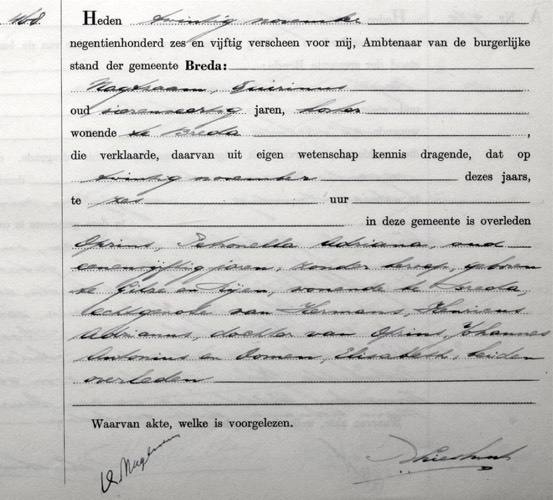 Heden twintig november
negentienhonderd zes en vijftig verscheen voor mij, Ambtenaar van de burgerlijke
stand der gemeente Breda:
Nagtzaam, Quirinus
oud zevenveertig jaren, koster
wonende te Breda,
die verklaarde, daarvan uit eigen wetenschap kennis dragende, dat op
twintig november dezes jaars,
te zes uur
in deze gemeente is overleden
Oprins, Petronella Adriana, oud
eenenvijftig jaren, zonder beroep, geboren
te Gilze en Rijen, wonende te Breda,
echtgenote van Hermans, Henricus
Adrianus, dochter van Oprins, Johannes
Antonius en Oomen, Elisabeth, beiden
overleden
Waarvan akte, welke is voorgelezen.